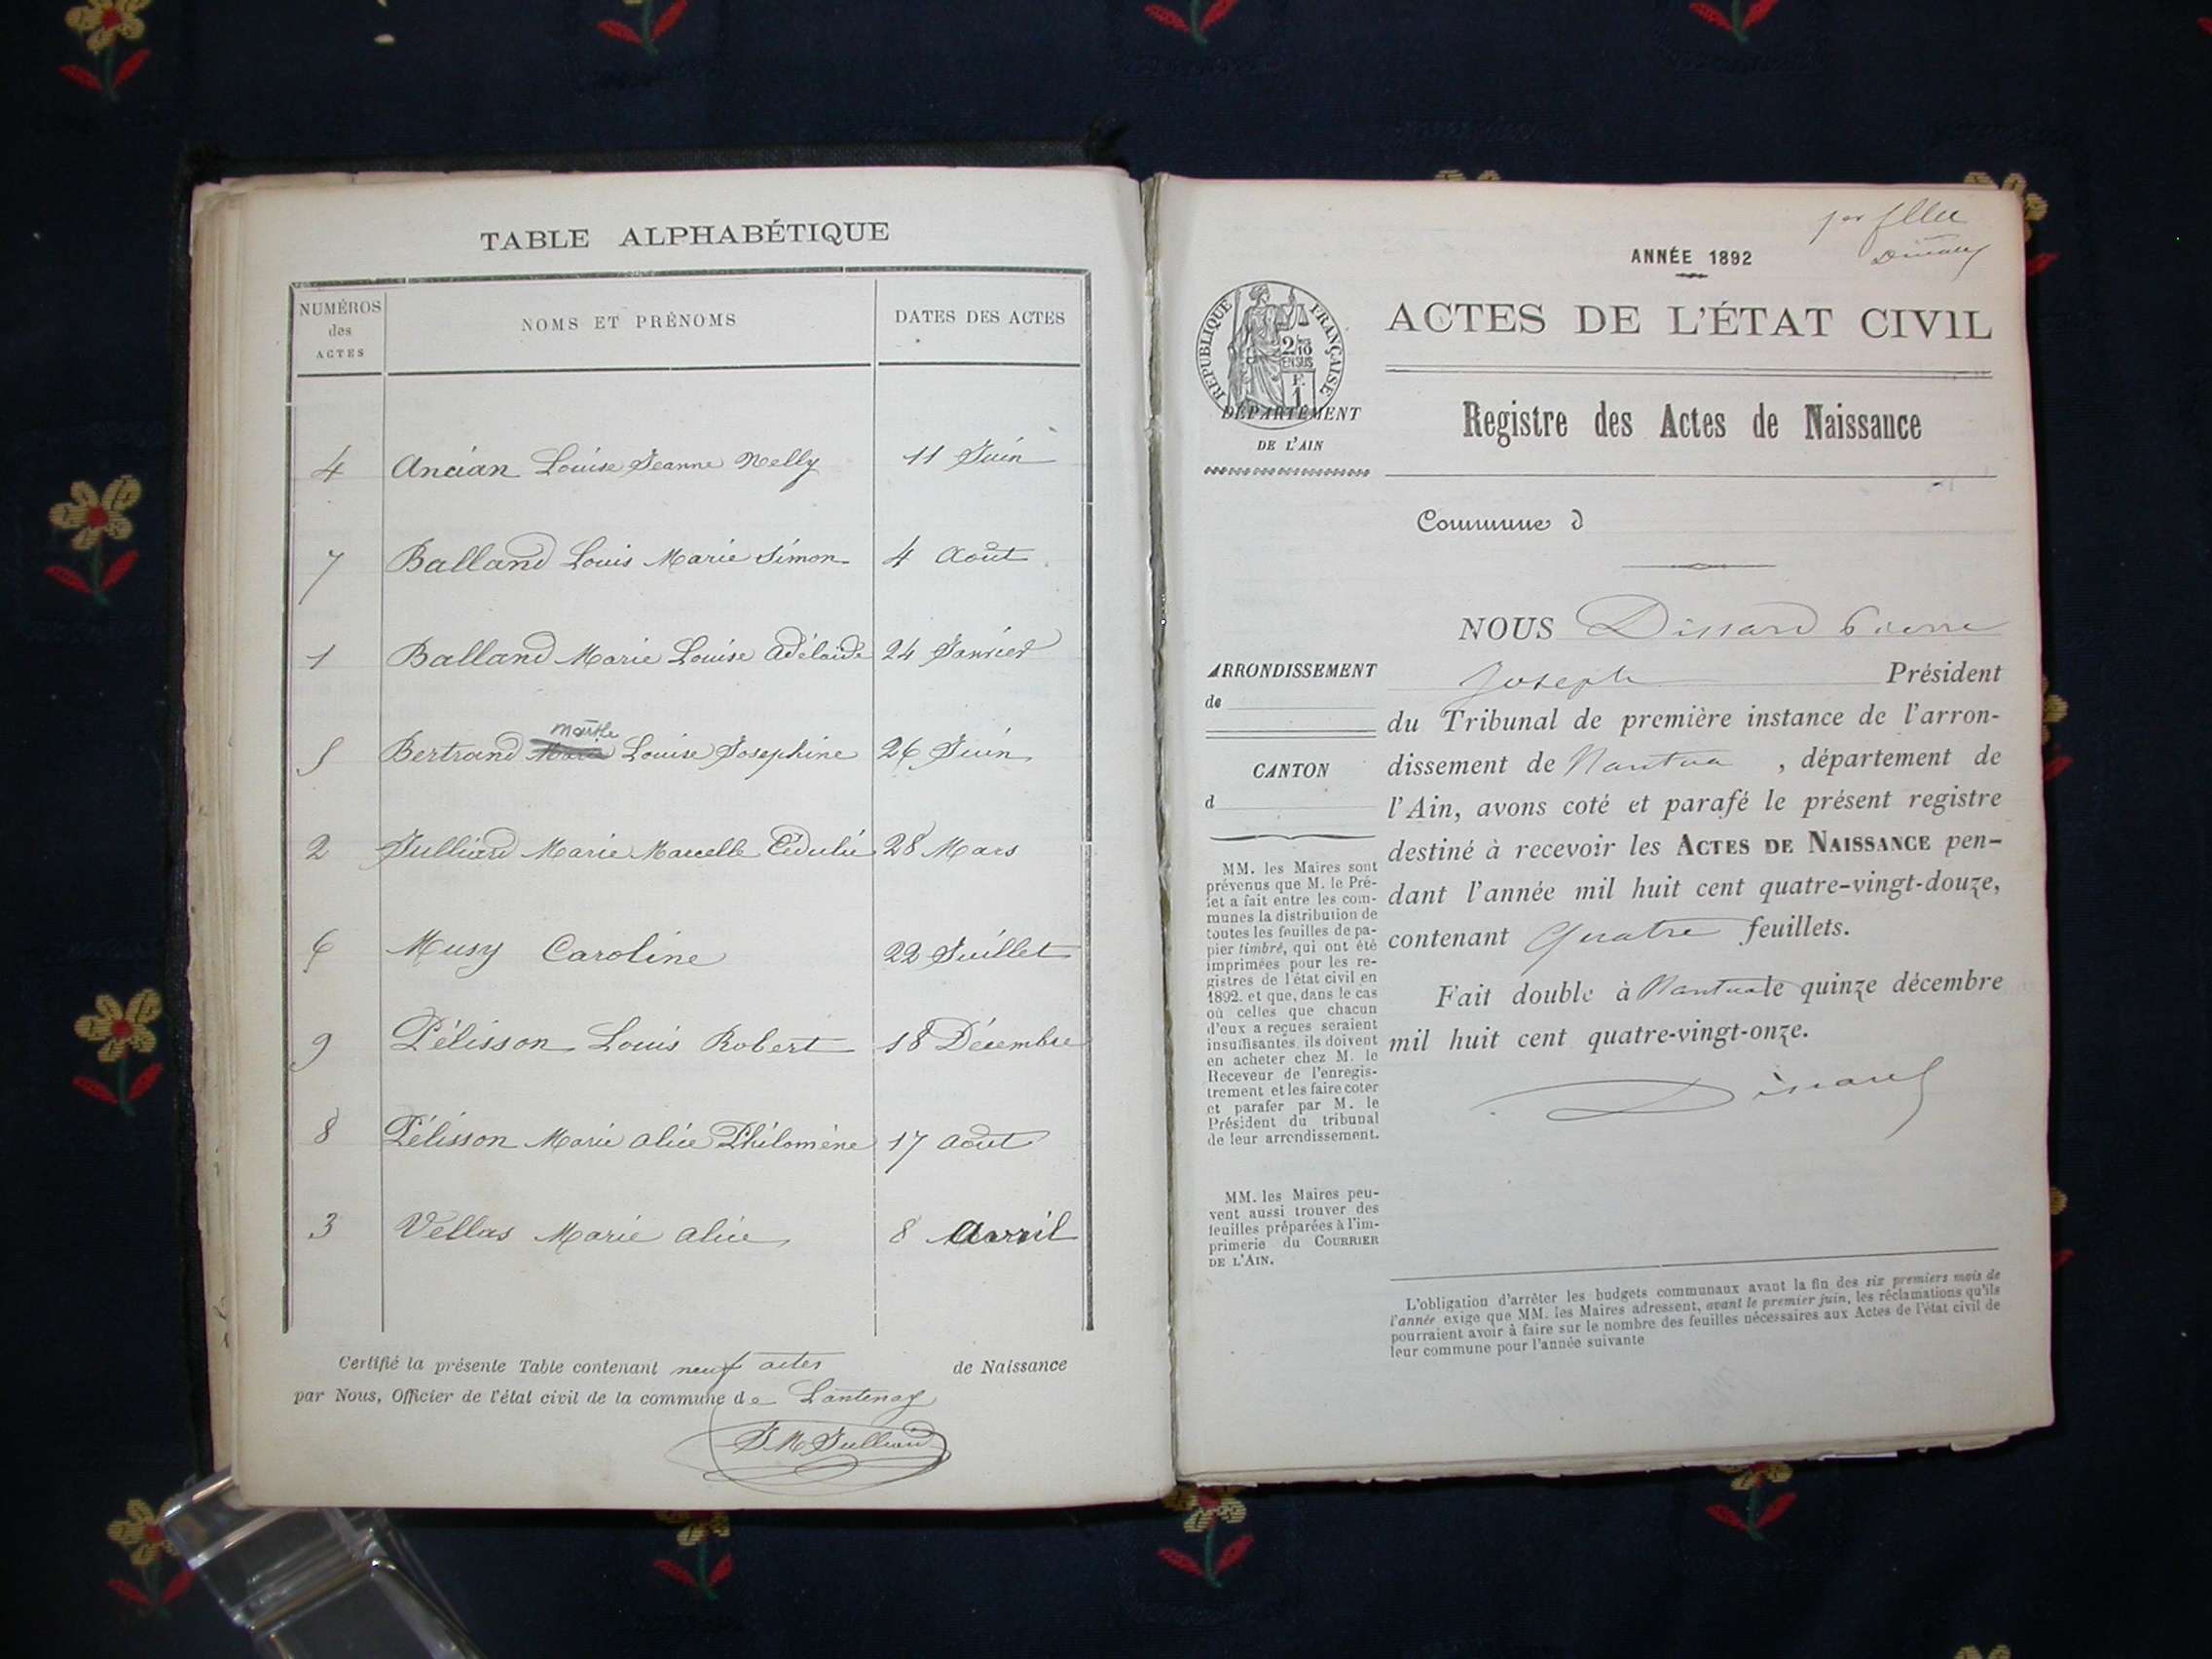 TABLE ALPHABÉTIQUE
NUMÉROS
des
ACTES
NOMS ET PRÉNOMS
DATES DES ACTES
4 Ancian Louise Jeanne Nelly 11 Juin
7 Balland Louis Marie Simon 4 Août
1 Balland Marie Louise Adélaïde 24 Janvier
Marthe
5 Bertrand Marie Louise Joséphine 26 Juin
2 Julliard Marie Marcelle 28 Mars
6 Musy Caroline 22 Juillet
9 Pélisson Louis Robert 18 Décembre
8 Pélisson Marie Alice Philomène 17 Août
3 Vellas Marie Alice 8 Avril
Certifié la présente Table contenant neuf actes de Naissance
par Nous, Officier de l'état civil de la commune de Lantenay
J M Julliard
ANNÉE 1892
RÉPUBLIQUE FRANÇAISE
2/10
EN SUS
F.
1
ACTES DE L'ÉTAT CIVIL
DÉPARTEMENT
DE L'AIN
Registre des Actes de Naissance
Commune d
NOUS Dissard Pierre
Joseph Président
du Tribunal de première instance de l'arron-
dissement de Nantua , département de
l'Ain, avons coté et parafé le présent registre
destiné à recevoir les ACTES DE NAISSANCE pen-
dant l'année mil huit cent quatre-vingt-douze,
contenant Quatre feuillets.
Fait double à Nantua le quinze décembre
mil huit cent quatre-vingt-onze.
Dissard
ARRONDISSEMENT
de
CANTON
d
MM. les Maires sont
prévenus que M. le Pré-
fet a fait entre les com-
munes la distribution de
toutes les feuilles de pa-
pier timbré, qui ont été
imprimées pour les re-
gistres de l'état civil en
1892. et que, dans le cas
où celles que chacun
d'eux a reçues seraient
insuffisantes, ils doivent
en acheter chez M. le
Receveur de l'enregis-
trement et les faire coter
et parafer par M. le
Président du tribunal
de leur arrondissement.
MM. les Maires peu-
vent aussi trouver des
feuilles préparées à l'im-
primerie du COURRIER
DE L'AIN.
L'obligation d'arrêter les budgets communaux avant la fin des six premiers mois de
l'année exige que MM. les Maires adressent, avant le premier juin, les réclamations qu'ils
pourraient avoir à faire sur le nombre des feuilles nécessaires aux Actes de l'état civil de
leur commune pour l'année suivante